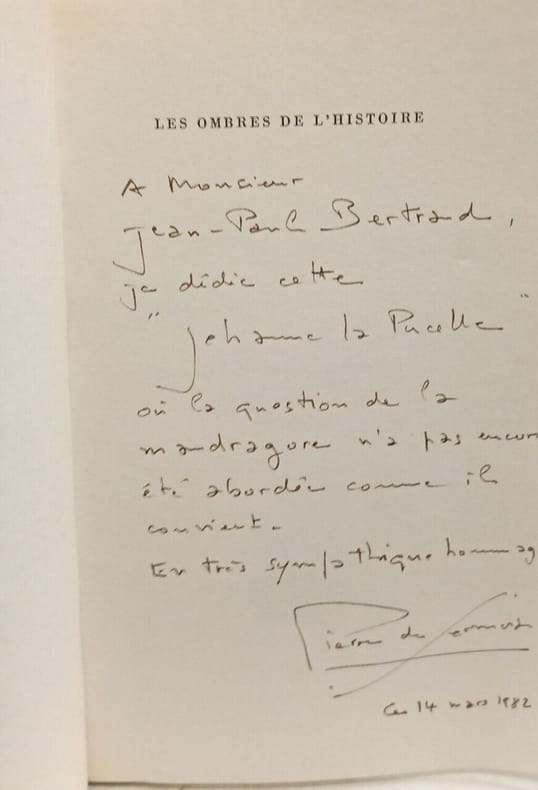 LES OMBRES DE L'HISTOIRE
A Monsieur
Jean-Paul Bertrand,
je dédie cette
"Jehanne la Pucelle"
où la question de la
mandragore n'a pas encor
été abordée comme il
convient.
En très sympathique hommag
Pierre de Sermoise
Ce 14 mars 1982